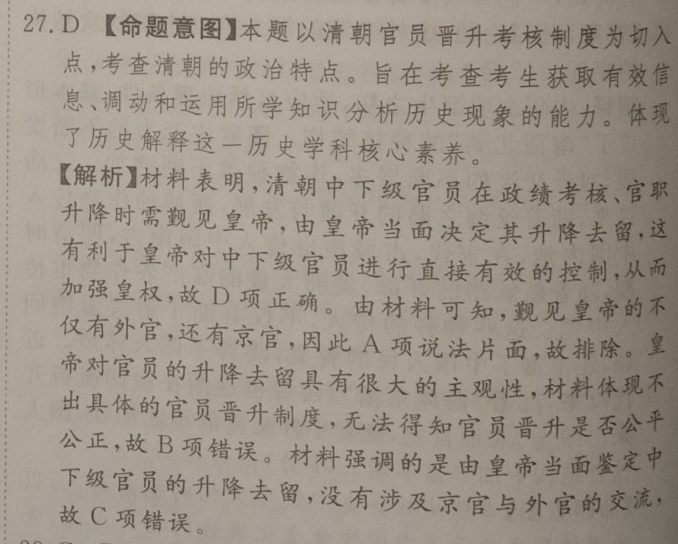 27. D 【命题意图】本题以清朝官员晋升考核制度为切入
点,考查清朝的政治特点。旨在考查考生获取有效信
息、调动和运用所学知识分析历史现象的能力。体现
了历史解释这一历史学科核心素养。
【解析】材料表明,清朝中下级官员在政绩考核、官职
升降时需觐见皇帝,由皇帝当面决定其升降去留,这
有利于皇帝对中下级官员进行直接有效的控制,从而
加强皇权,故 D 项正确。由材料可知,觐见皇帝的不
仅有外官,还有京官,因此 A 项说法片面,故排除。皇
帝对官员的升降去留具有很大的主观性,材料体现不
出具体的官员晋升制度,无法得知官员晋升是否公平
公正,故 B 项错误。材料强调的是由皇帝当面鉴定中
下级官员的升降去留,没有涉及京官与外官的交流,
故 C 项错误。